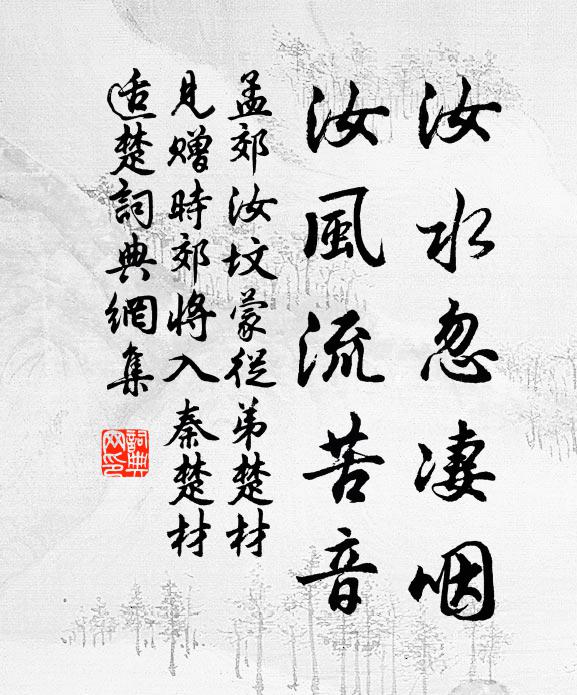 汝水忽淒咽
汝風流苦音
孟郊汝墳蒙從弟楚材
見贈時郊將入秦楚材
适楚詞典網集
詞典
网印